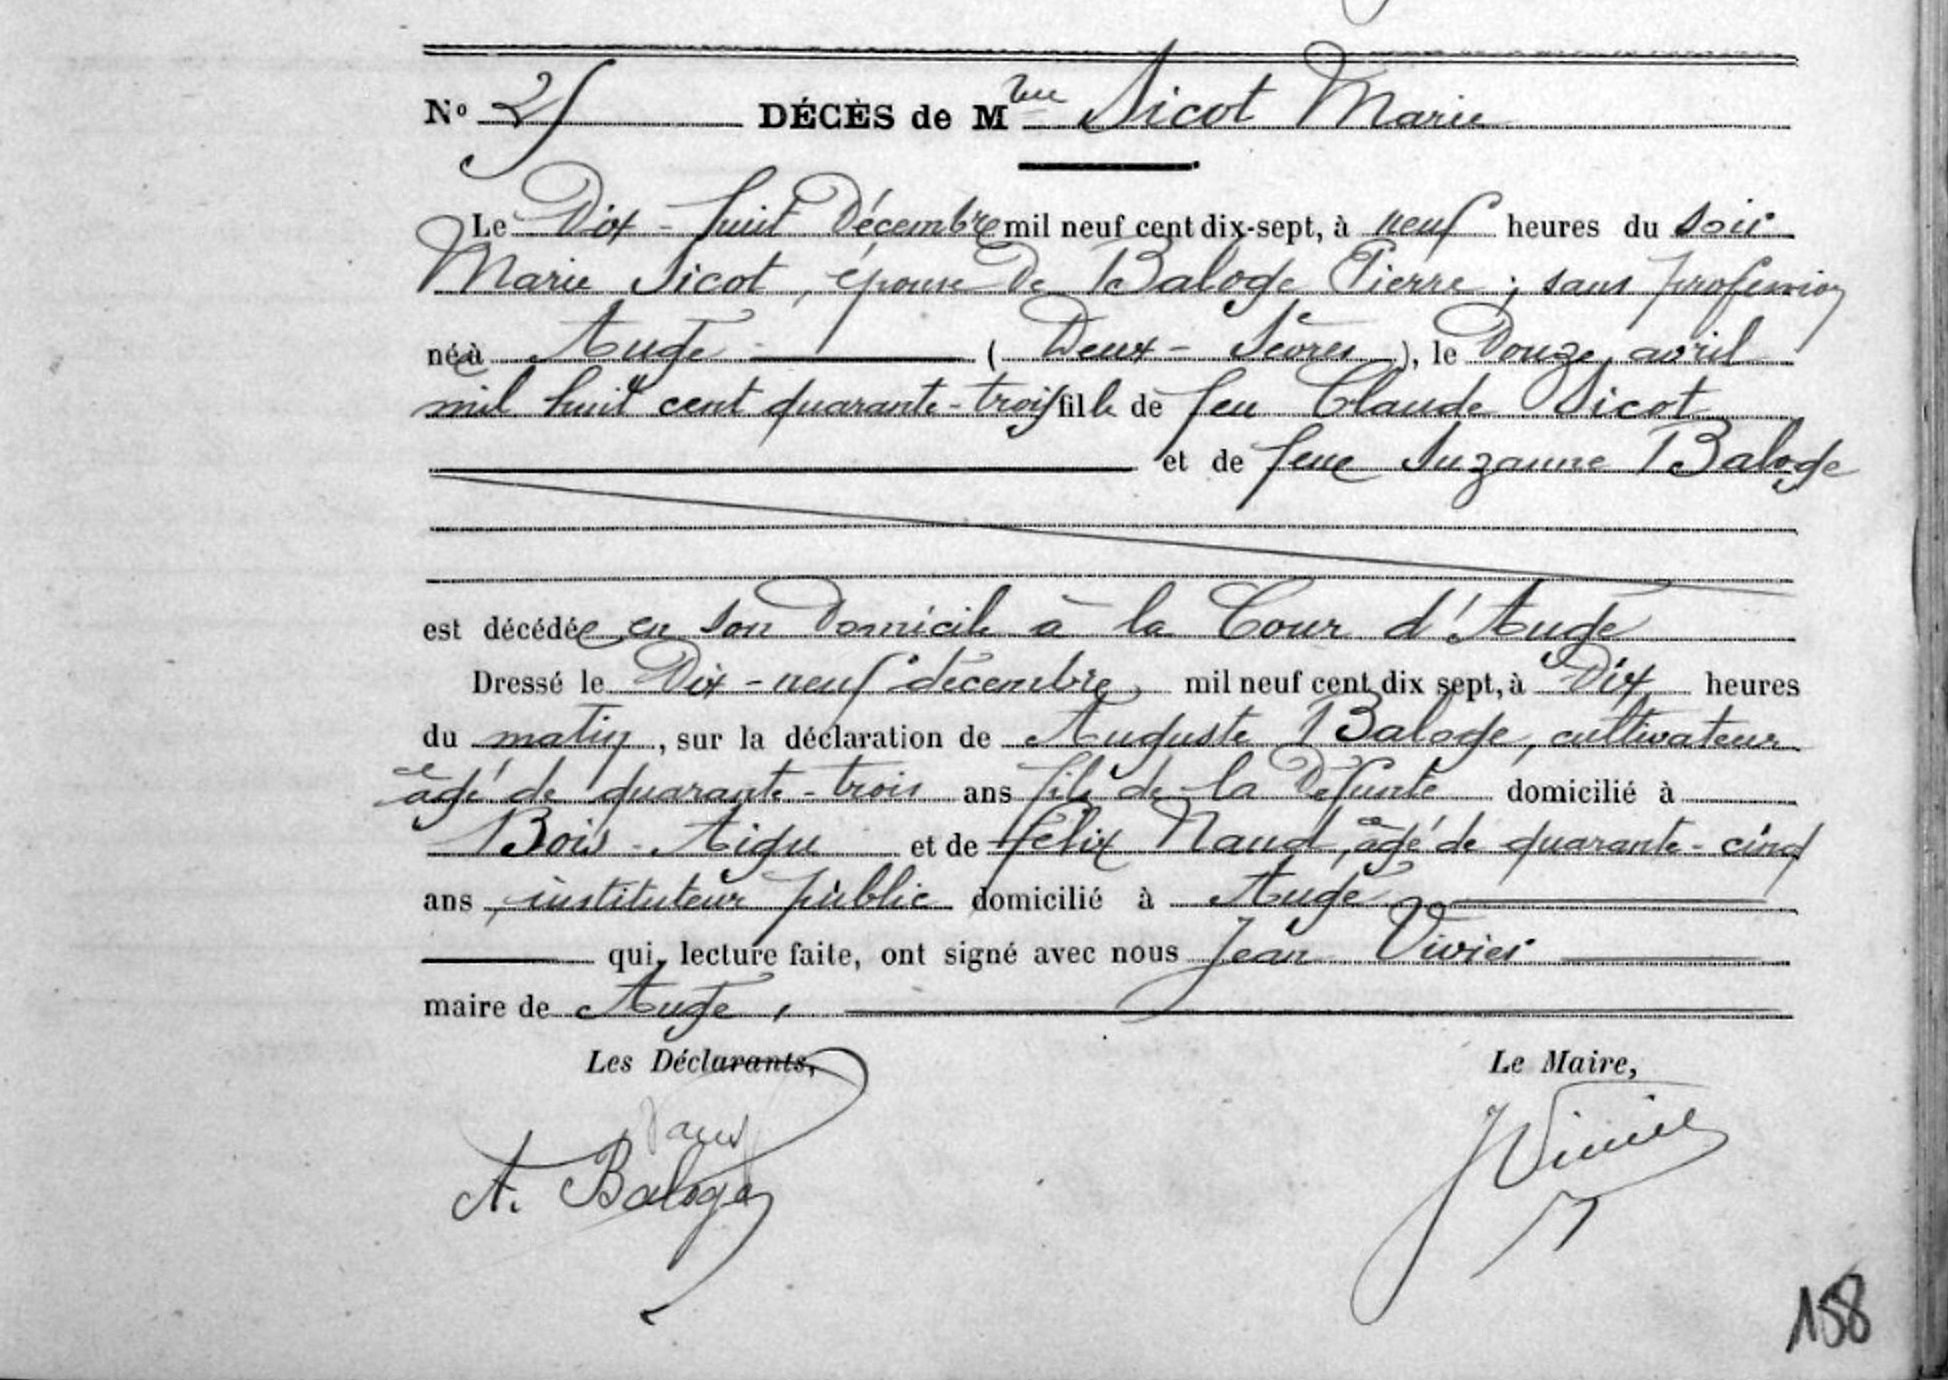 No 25 DÉCÈS de Mme Sicot Marie
Le Dix-huit Décembre mil neuf cent dix-sept, à neuf heures du soir
Marie Sicot, épouse de Baloge Pierre ; sans profession
née à Augé (Deux-Sèvres), le Douze avril
mil huit cent quarante-trois fille de feu Claude Sicot
et de feue Suzanne Baloge
est décédée en son domicile à la Cour d'Augé
Dressé le Dix-neuf décembre, mil neuf cent dix sept, à Dix heures
du matin, sur la déclaration de Auguste Baloge, cultivateur
âgé de quarante-trois ans fils de la Défunte domicilié à
Bois-Aigu et de Félix Naud, âgé de quarante-cinq
ans, instituteur public domicilié à Augé
qui, lecture faite, ont signé avec nous Jean Vivier
maire de Augé,
Les Déclarants,
Le Maire,
A. Baloge
JVivier
158